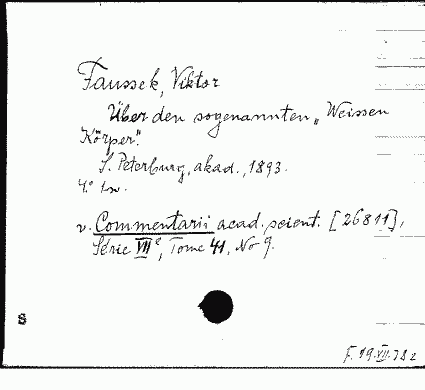 Faussek, Viktor
Über den sogenannten „Weissen
Körper".
S. Peterburg, akad., 1893.
4° br.
v. Commentarii acad. scient. [26811],
Série VII e, Tome 41, No 9.
S
F. 19.VII.